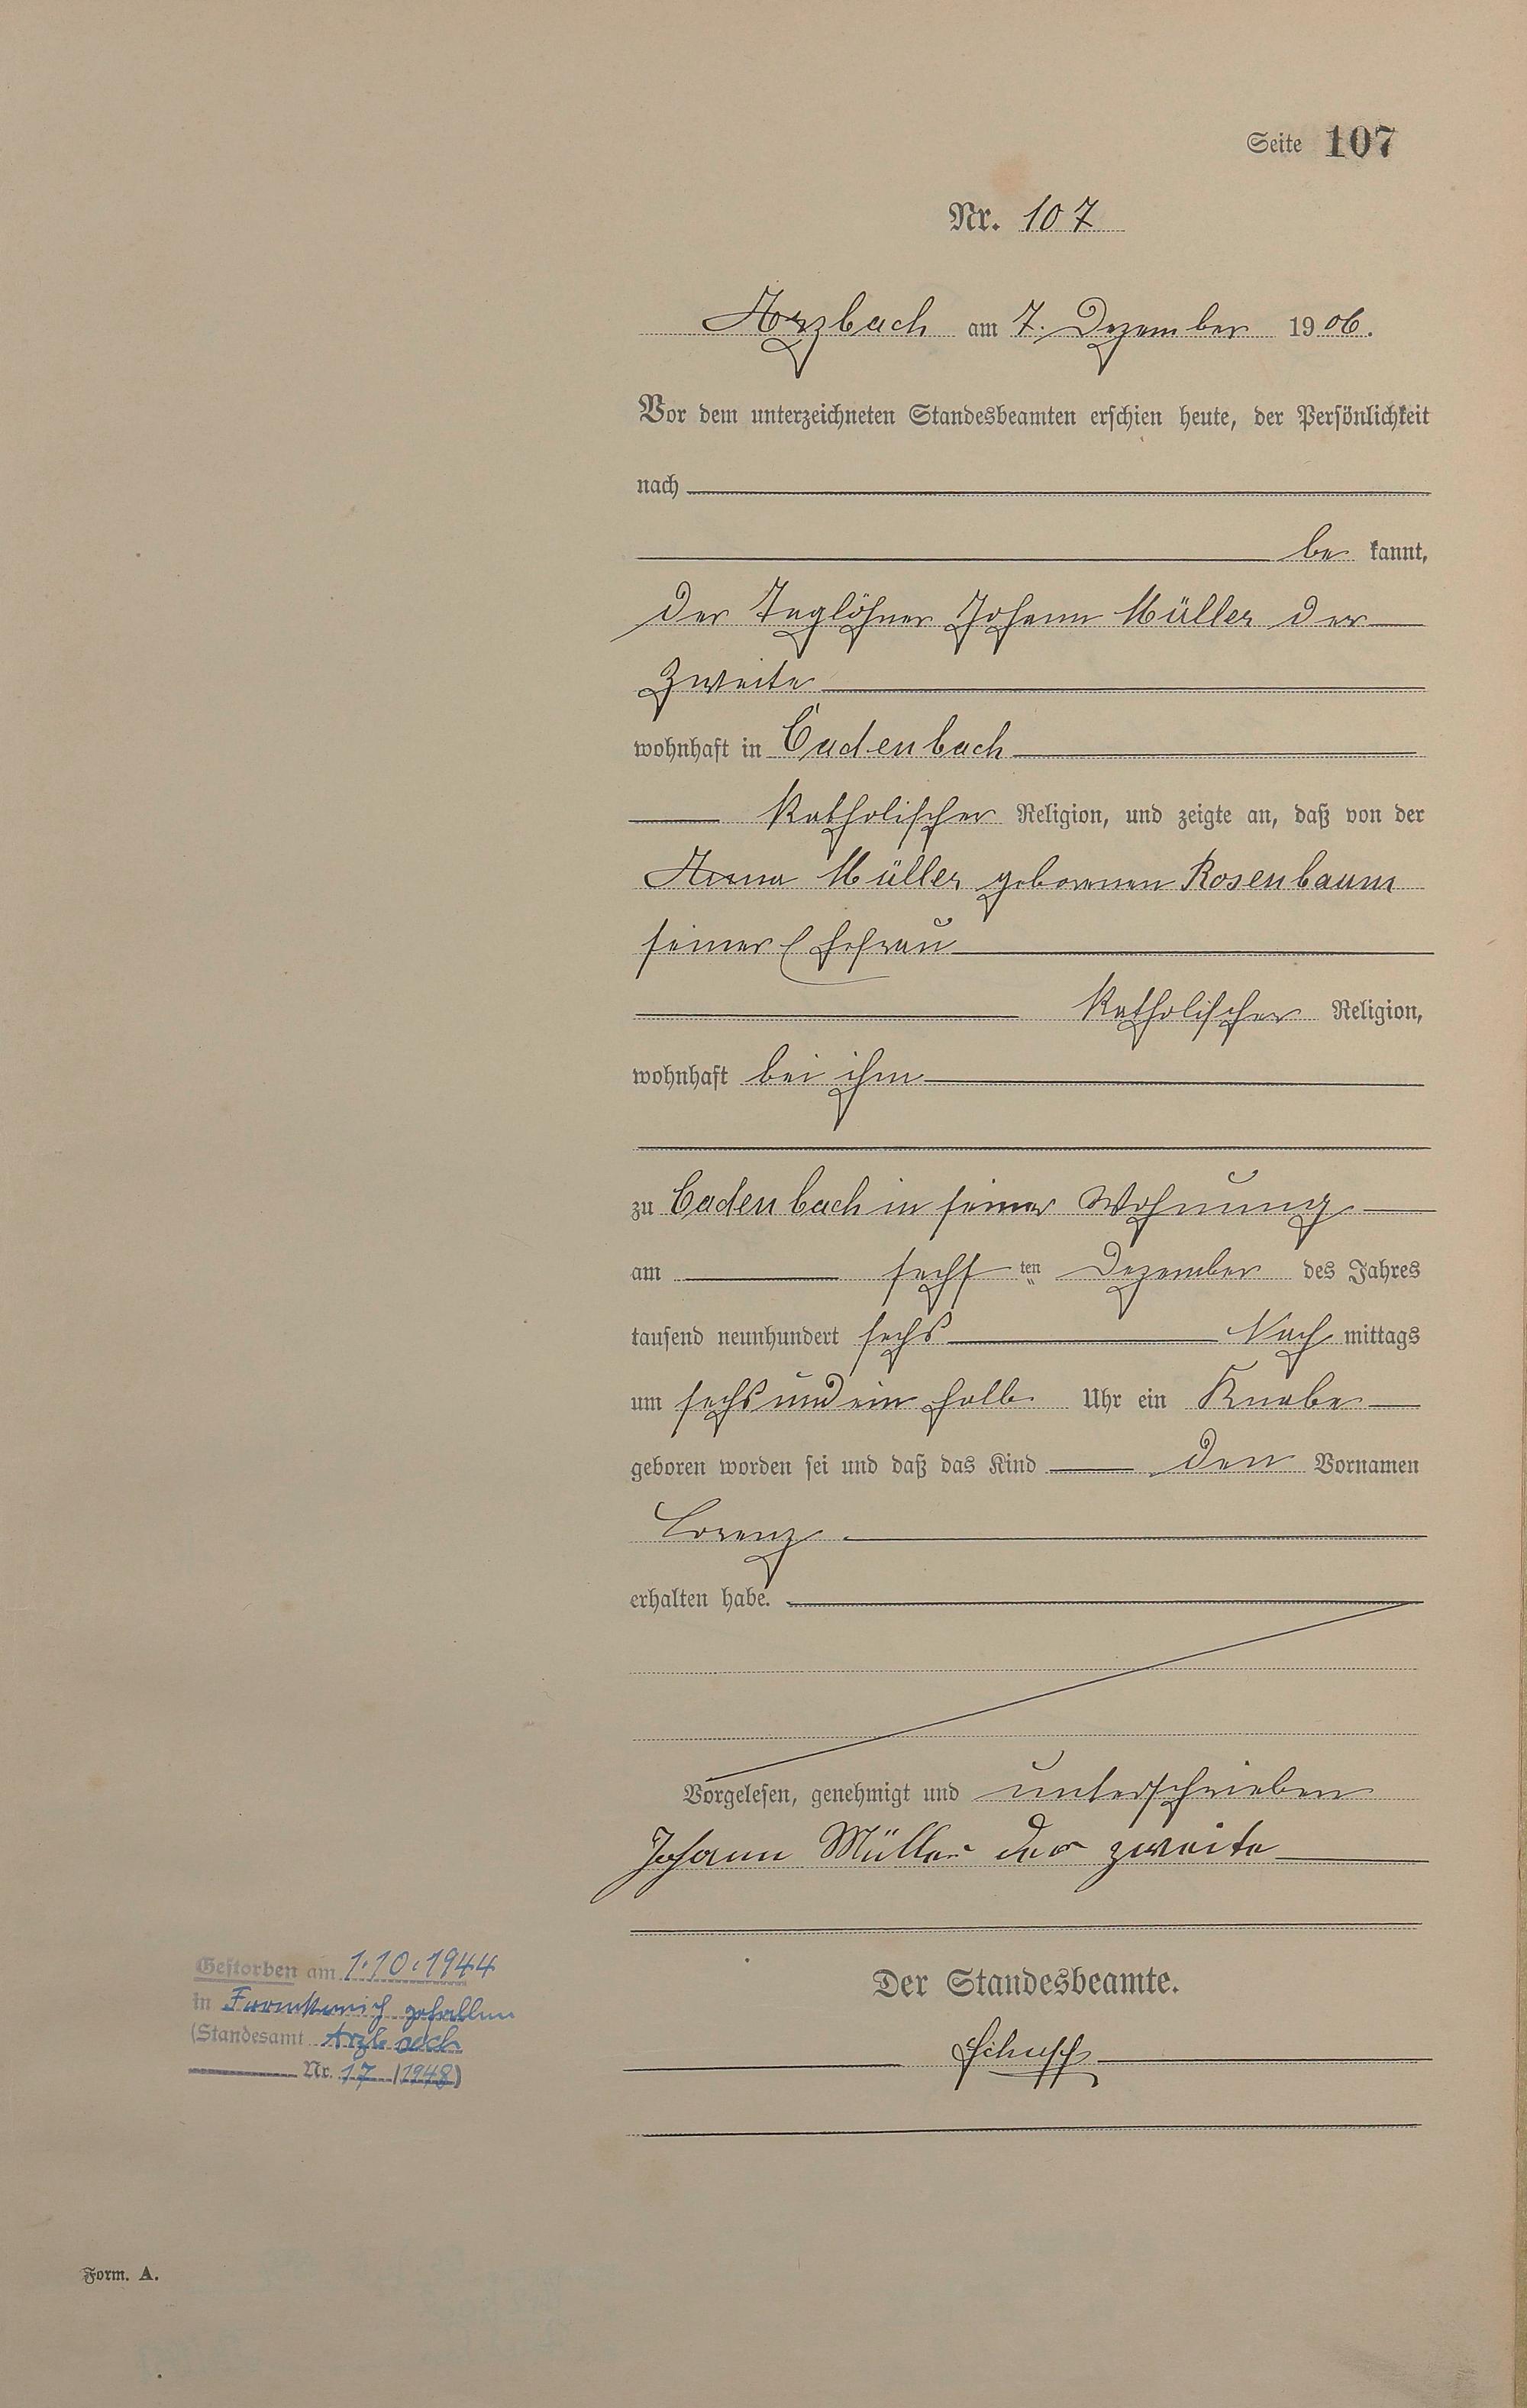 Seite 107
Nr. 107
Arzbach am 7. Dezember 1906.
Vor dem unterzeichneten Standesbeamten erschien heute, der Persönlichkeit
nach
be kannt,
der Taglöhner Johann Müller der
zweite
wohnhaft in Cadenbach
katholischer Religion, und zeigte an, daß von der
Anna Müller geborenen Rosenbaum
seiner Ehefrau
katholischer Religion,
wohnhaft bei ihm
zu Cadenbach in seiner Wohnung
am sechsten Dezember des Jahres
tausend neunhundert sechs Nach mittags
um sechs und ein halb Uhr ein Knabe
geboren worden sei und daß das Kind den Vornamen
Lorenz
erhalten habe.
Vorgelesen, genehmigt und unterschrieben
Johann Müller der zweite
Der Standesbeamte.
Gestorben am 1.10.1944
in gefallen
(Standesamt Arzbach
Nr. 17 /1948)
Form. A.